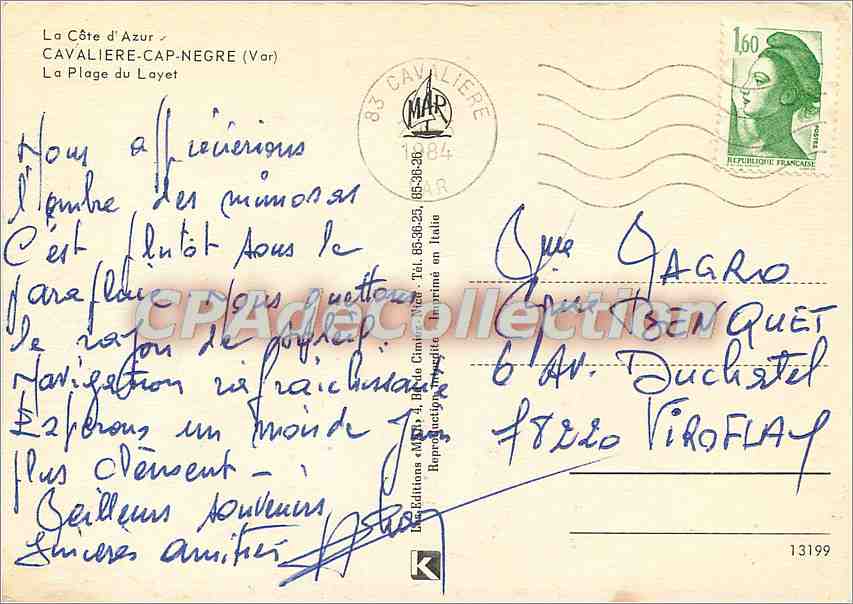 La Côte d'Azur
CAVALIERE-CAP-NEGRE (Var)
La Plage du Layet
1,60
POSTES
REPUBLIQUE FRANÇAISE
83 CAVALIERE
MAR
1984
VAR
Nous apprécierions
l'ombre des mimosas
C'est plutôt sous le
parapluie Nous guettons
le rayon de soleil.
Navigation rafraîchissante
Espérons un mois de Juin
plus clément -
Meilleurs souvenirs
Sincères amitiés
Les Editions «MAR» 4, Bd de Cimiez - Nice - Tél. 85-36-25, 85-36-26
Reproduction interdite - Imprimé en Italie
YAGRO
BENQUET
6 AV. Duchatel
78220 VIROFLAY
CPAdeCollection
K
13199